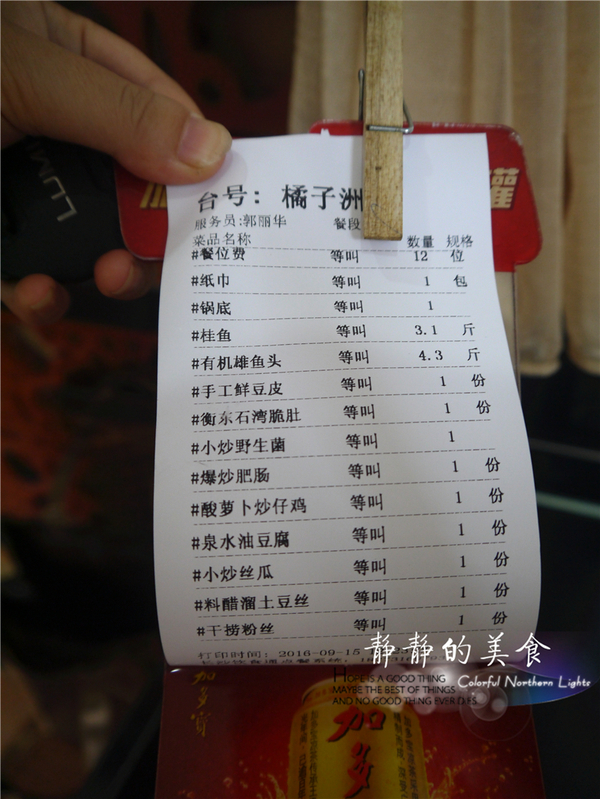 LUM
罐
台号: 橘子洲
服务员:郭丽华 餐段
菜品名称 数量 规格
#餐位费 等叫 12 位
#纸巾 等叫 1 包
#锅底 等叫 1
#桂鱼 等叫 3.1 斤
#有机雄鱼头 等叫 4.3 斤
#手工鲜豆皮 等叫 1 份
#衡东石湾脆肚 等叫 1 份
#小炒野生菌 等叫 1
#爆炒肥肠 等叫 1 份
#酸萝卜炒仔鸡 等叫 1 份
#泉水油豆腐 等叫 1 份
#小炒丝瓜 等叫 1 份
#料醋溜土豆丝 等叫 1 份
#干捞粉丝 等叫 1 份
打印时间: 2016-09-15
静静的美食
Colorful Northern Lights
HOPE IS A GOOD THING
MAYBE THE BEST OF THINGS
AND NO GOOD THING EVER DIES
加多宝
加多